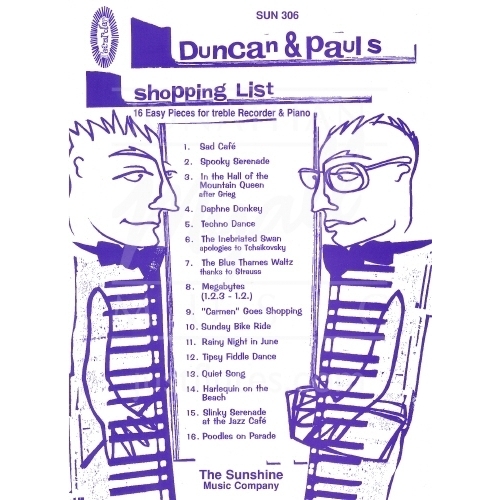 SUN 306
Duncan & Paul s
shopping List
16 Easy Pieces for treble Recorder & Piano
1. Sad Café
2. Spooky Serenade
3. In the Hall of the
Mountain Queen
after Grieg
4. Daphne Donkey
5. Techno Dance
6. The Inebriated Swan
apologies to Tchaikovsky
7. The Blue Thames Waltz
thanks to Strauss
8. Megabytes
(1.2.3 - 1.2.)
9. "Carmen" Goes Shopping
10. Sunday Bike Ride
11. Rainy Night in June
12. Tipsy Fiddle Dance
13. Quiet Song
14. Harlequin on the
Beach
15. Slinky Serenade
at the Jazz Café
16. Poodles on Parade
The Sunshine
Music Company